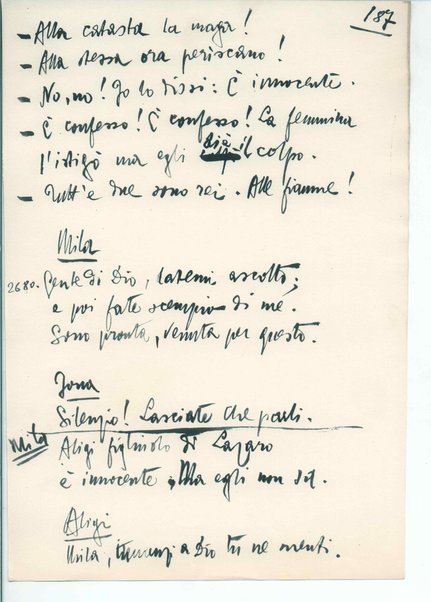 187
- Alla catasta la maga!
- Alla stessa ora periscano!
- No, no! Jo lo dissi: È innocente.
- È confesso! È confesso! La femmina
l'istigò ma egli diè il colpo.
- Tutt'e due sono rei. Alle fiamme!
Mila
2680. Gente di Dio, datemi ascolto;
e poi fate scempio di me.
Sono pronta, venuta per questo.
Jona
Silenzio! Lasciate che parli.
Mila Aligi figliuolo di Lazaro
è innocente. Ma egli non sa.
Aligi
Mila, innanzi a Dio tu ne menti.